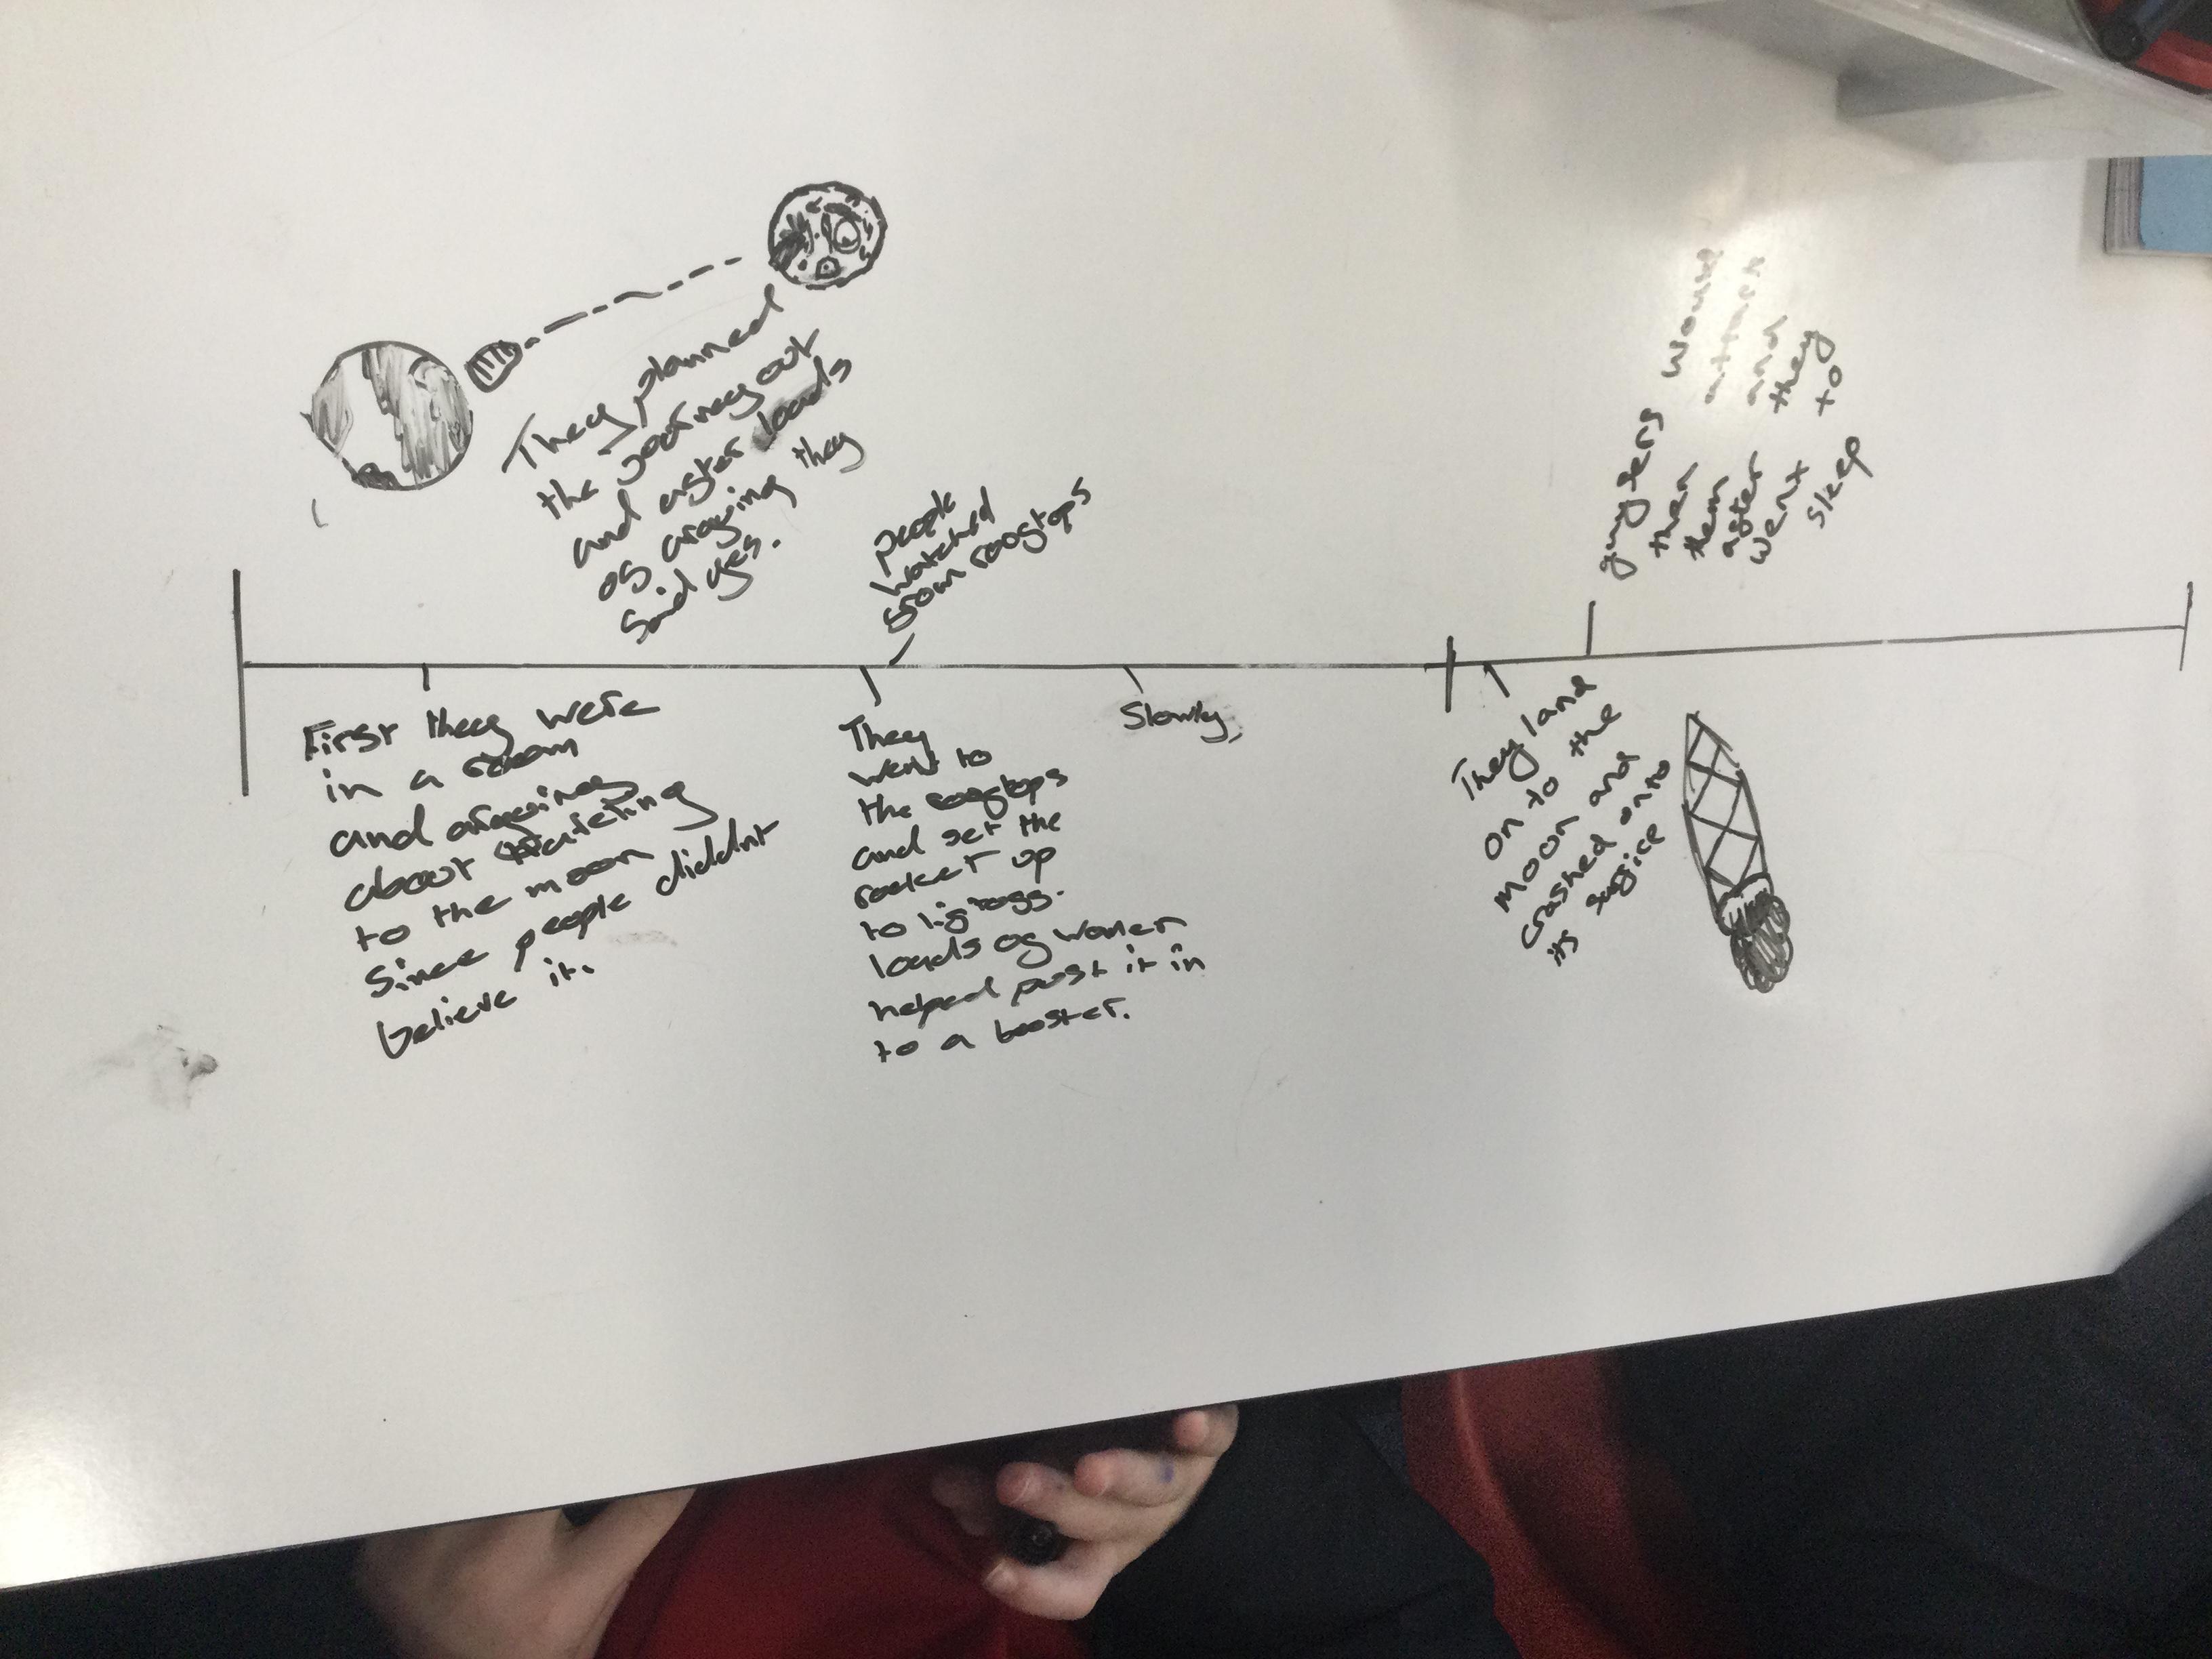 They planned
the jeorney out
and after loads
of arguing they
Said yes.
people
watched
from rooftops
geysers would
then attack
them and
after they
went to
sleep
First they were
in a room
and arguing
about
to the moon
Since people diddnt
believe it.
They
went to
the rooftops
and set the
rocket up
to
loads of women
helped push it in
to a booster.
Slowly,
They land
on to the
moon and
crashed onto
its surfice